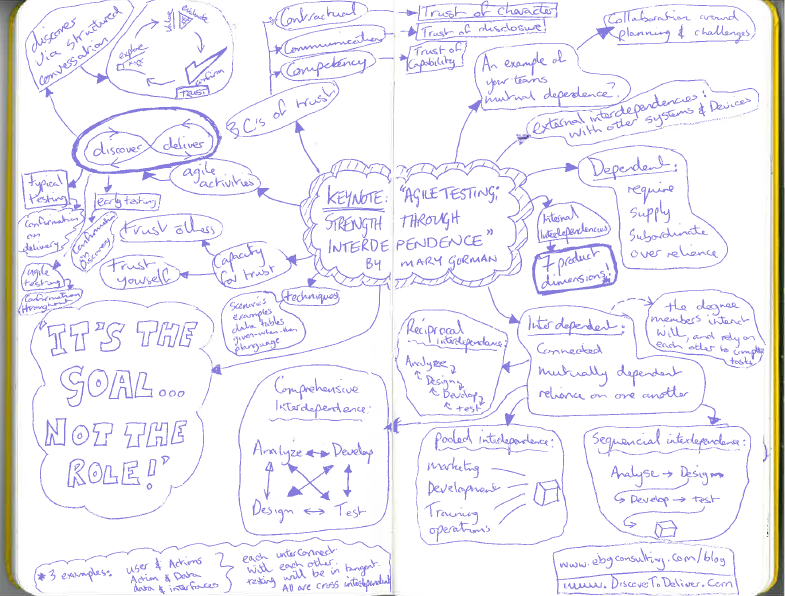 discover
via structured
conversation
evaluate
explore
confirm
TRUST!
Contractual
Communication
Competency
3 C's of trust.
Trust of character
Trust of disclosure
Trust of
Capability
An example of
your teams
mutual dependence?
Collaboration around
planning & challenges
external interdependencies:
with other systems & Devices
discover
deliver
agile
activities
typical
testing
Confirmation
on
delivery
early testing
Confirmation
on
Discovery
agile
testing
Confirmation throughout
trust others
trust
yourself
Capacity
for trust
techniques
Scenarios
examples
data tables
given-when-then
planguage
KEYNOTE: "AGILE TESTING;
STRENGTH THROUGH
INTERDEPENDENCE"
BY MARY GORMAN
Dependent:
require
supply
Subordinate
over relience
Internal
Interdependencies
7 product
dimensions!
Interdependent:
Connected
mutually dependent
relience on one another
the degree
members interact
will, and rely on
each other to complete
tasks
Reciprocal
interdependence:
Analyze
Design
Develop
test
"IT'S THE
GOAL...
NOT THE
ROLE!"
Comprehensive
Interdependence:
Analyze
Develop
Design
Test
Pooled interdependence:
marketing
Development
Training
operations
Sequencial interdependence:
Analyse → Design
Develop → test
* 3 examples:
user & Actions
Action & Data
data & interfaces
each interconnect
with each other.
testing will be in tangent
All are cross interdependent
www.ebgconsulting.com/blog
www.DiscoverToDeliver.com